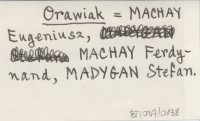 Orawiak = MACHAY
Eugeniusz,
MACHAY Ferdy-
nand, MADYGAN Stefan.